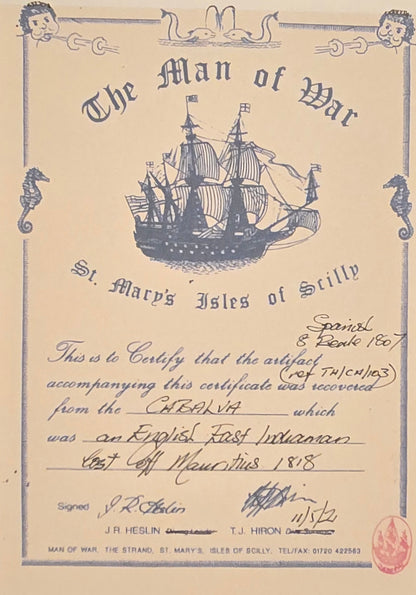 The Man of War
St. Mary's Isles of Scilly
Spanish
8 Reale 1807
This is to Certify that the artifact
(ref TH/CA/103)
accompanying this certificate was recovered
from the CABALVA which
was an English East Indiaman
Lost off Mauritius 1818
Signed J.R. Heslin
11/5/21
J.R. HESLIN Diving Leader T.J. HIRON
MAN OF WAR, THE STRAND, ST. MARY'S, ISLES OF SCILLY. TEL/FAX: 01720 422563